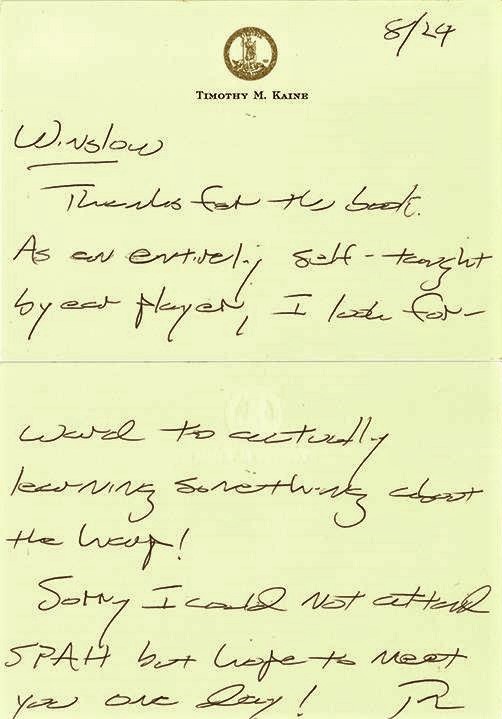 8/24
TIMOTHY M. KAINE
Winslow
Thanks for the book.
As an entirely self-taught
by ear player, I look for-
ward to actually
learning something about
the harp!
Sorry I could not attend
SPAH but hope to meet
you one day!